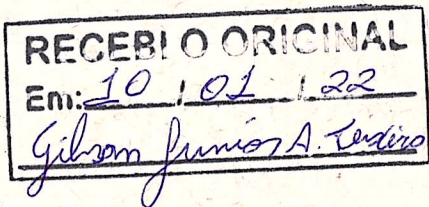 RECEBI O ORIGINAL
Em: 10 / 01 / 22
Gilson Junior A.